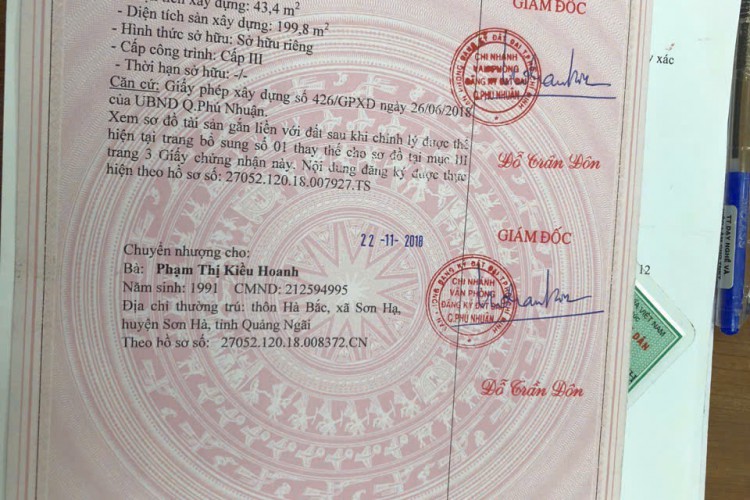 xây dựng: 43,4 m²
- Diện tích sàn xây dựng: 199,8 m²
- Hình thức sở hữu: Sở hữu riêng
- Cấp công trình: Cấp III
- Thời hạn sở hữu: -/-
Căn cứ: Giấy phép xây dựng số 426/GPXD ngày 26/06/2018
của UBND Q.Phú Nhuận.
Xem sơ đồ tài sản gắn liền với đất sau khi chỉnh lý được thể
hiện tại trang bổ sung số 01 thay thế cho sơ đồ tại mục III
trang 3 Giấy chứng nhận này. Nội dung đăng ký được thực
hiện theo hồ sơ số: 27052.120.18.007927.TS
GIÁM ĐỐC
CHI NHÁNH
VĂN PHÒNG
ĐĂNG KÝ ĐẤT ĐAI
Q.PHÚ NHUẬN
Đỗ Trần Đôn
22-11-2018
Chuyển nhượng cho:
Bà: Phạm Thị Kiều Hoanh
Năm sinh: 1991 CMND: 212594995
Địa chỉ thường trú: thôn Hà Bắc, xã Sơn Hạ,
huyện Sơn Hà, tỉnh Quảng Ngãi
Theo hồ sơ số: 27052.120.18.008372.CN
GIÁM ĐỐC
CHI NHÁNH
VĂN PHÒNG
ĐĂNG KÝ ĐẤT ĐAI
Q.PHÚ NHUẬN
Đỗ Trần Đôn
xác
12
VIỆT NAM
DÂN
TT.DẠY NGHỀ VÀ